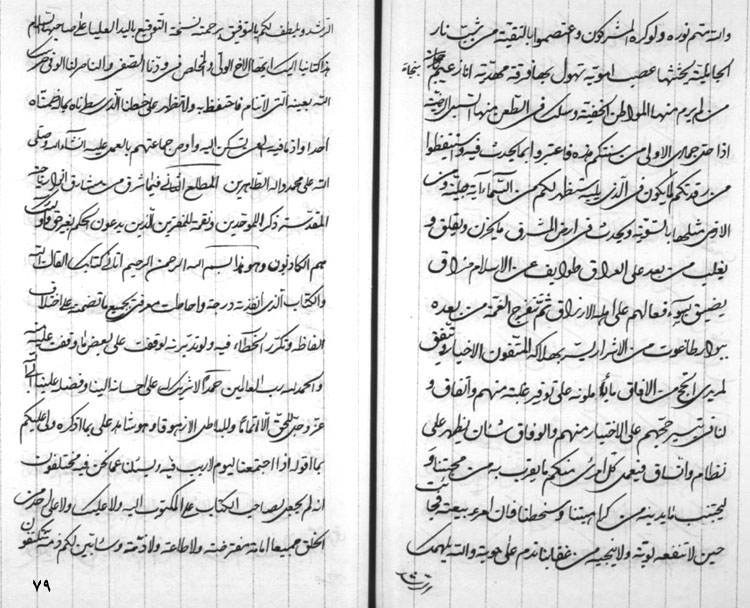 والله متم نوره ولو كره المشركون واعتصموا بالتقية من شب نار
الجاهلية يحششها عصب اموية تهول بها فرقة مهدية انا زعيم بنجاة
من لم يرم منها المواطن الخفية وسلك في الطعن منها السبل الرضية
اذا حل جمادى الاولى من سنتكم هذه فاعتبروا بما يحدث فيه واستيقظوا
من رقدتكم لما يكون في الذي يليه ستظهر لكم من السماء آية جلية ومن
الارض مثلها بالسوية ويحدث في ارض المشرق ما يحزن ويقلق و
يغلب من بعد على العراق طوايف عن الاسلام مراق
يضيق بسوء فعالهم على اهله الارزاق ثم تنفرج الغمة من بعده
ببوار طاغوت من الاشرار يسر بهلاكه المتقون الاخيار ويتفق
لمريدي الحج من الافاق ما يأملونه على توفير غلبة منهم واتفاق و
لنا في تيسير حجهم على الاختيار منهم والوفاق شان يظهر على
نظام واتساق فيعمل كل امرئ منكم ما يقرب به من محبتنا و
ليجتنب ما يدنيه من كراهيتنا وسخطنا فان امرء يبعثه فجأة
حين لا تنفعه توبة ولا ينجيه من عقابنا ندم على حوبة والله يلهمك
الرشد
الرشد ويلطف لكم بالتوفيق برحمته نسخة التوقيع باليد العليا على صاحبها السلام
هذا كتابنا اليك ايها الاخ الولي والمخلص في ودنا الصفي والناصر لنا الوفي حرسك
الله بعينه التي لا تنام فاحتفظ به ولا تظهر على خطنا الذي سطرناه بما ضمناه
احدا واد ما فيه الى من تسكن اليه واوص جماعتهم بالعمل عليه انشاء الله وصلى
الله على محمد واله الطاهرين المطلع فيما شرق من مشارق
المقدسة ذكرا للموحدين ونقمة للمفترين الذين يدعون الحكم بغير حق
هم الكاذبون وهو هذا بسم الله الرحمن الرحيم اتاني كتابك
والكتاب الذي انفذته درجه واحاطت معرفتي بجميع ما تضمنه على اختلاف
الفاظه وتكرر الخطاء فيه ولو تدبرته لوقفت على بعض ما وقفت عليه منه
والحمد لله رب العالمين حمدا لا شريك له على احسانه الينا وفضله علينا ابى الله
عز وجل للحق الا اتماما وللباطل الا زهوقا وهو شاهد على بما اذكره ولي عليكم
بما اقوله اذا اجتمعنا ليوم لا ريب فيه ويسئلنا عما نحن فيه مختلفون
انه لم يجعل لصاحب الكتاب على المكتوب اليه ولا عليك ولا على احد من
الخلق جميعا امامة مفترضة ولا طاعة ولا ذمة وسابين لكم ذمة تكتفون
۷۹